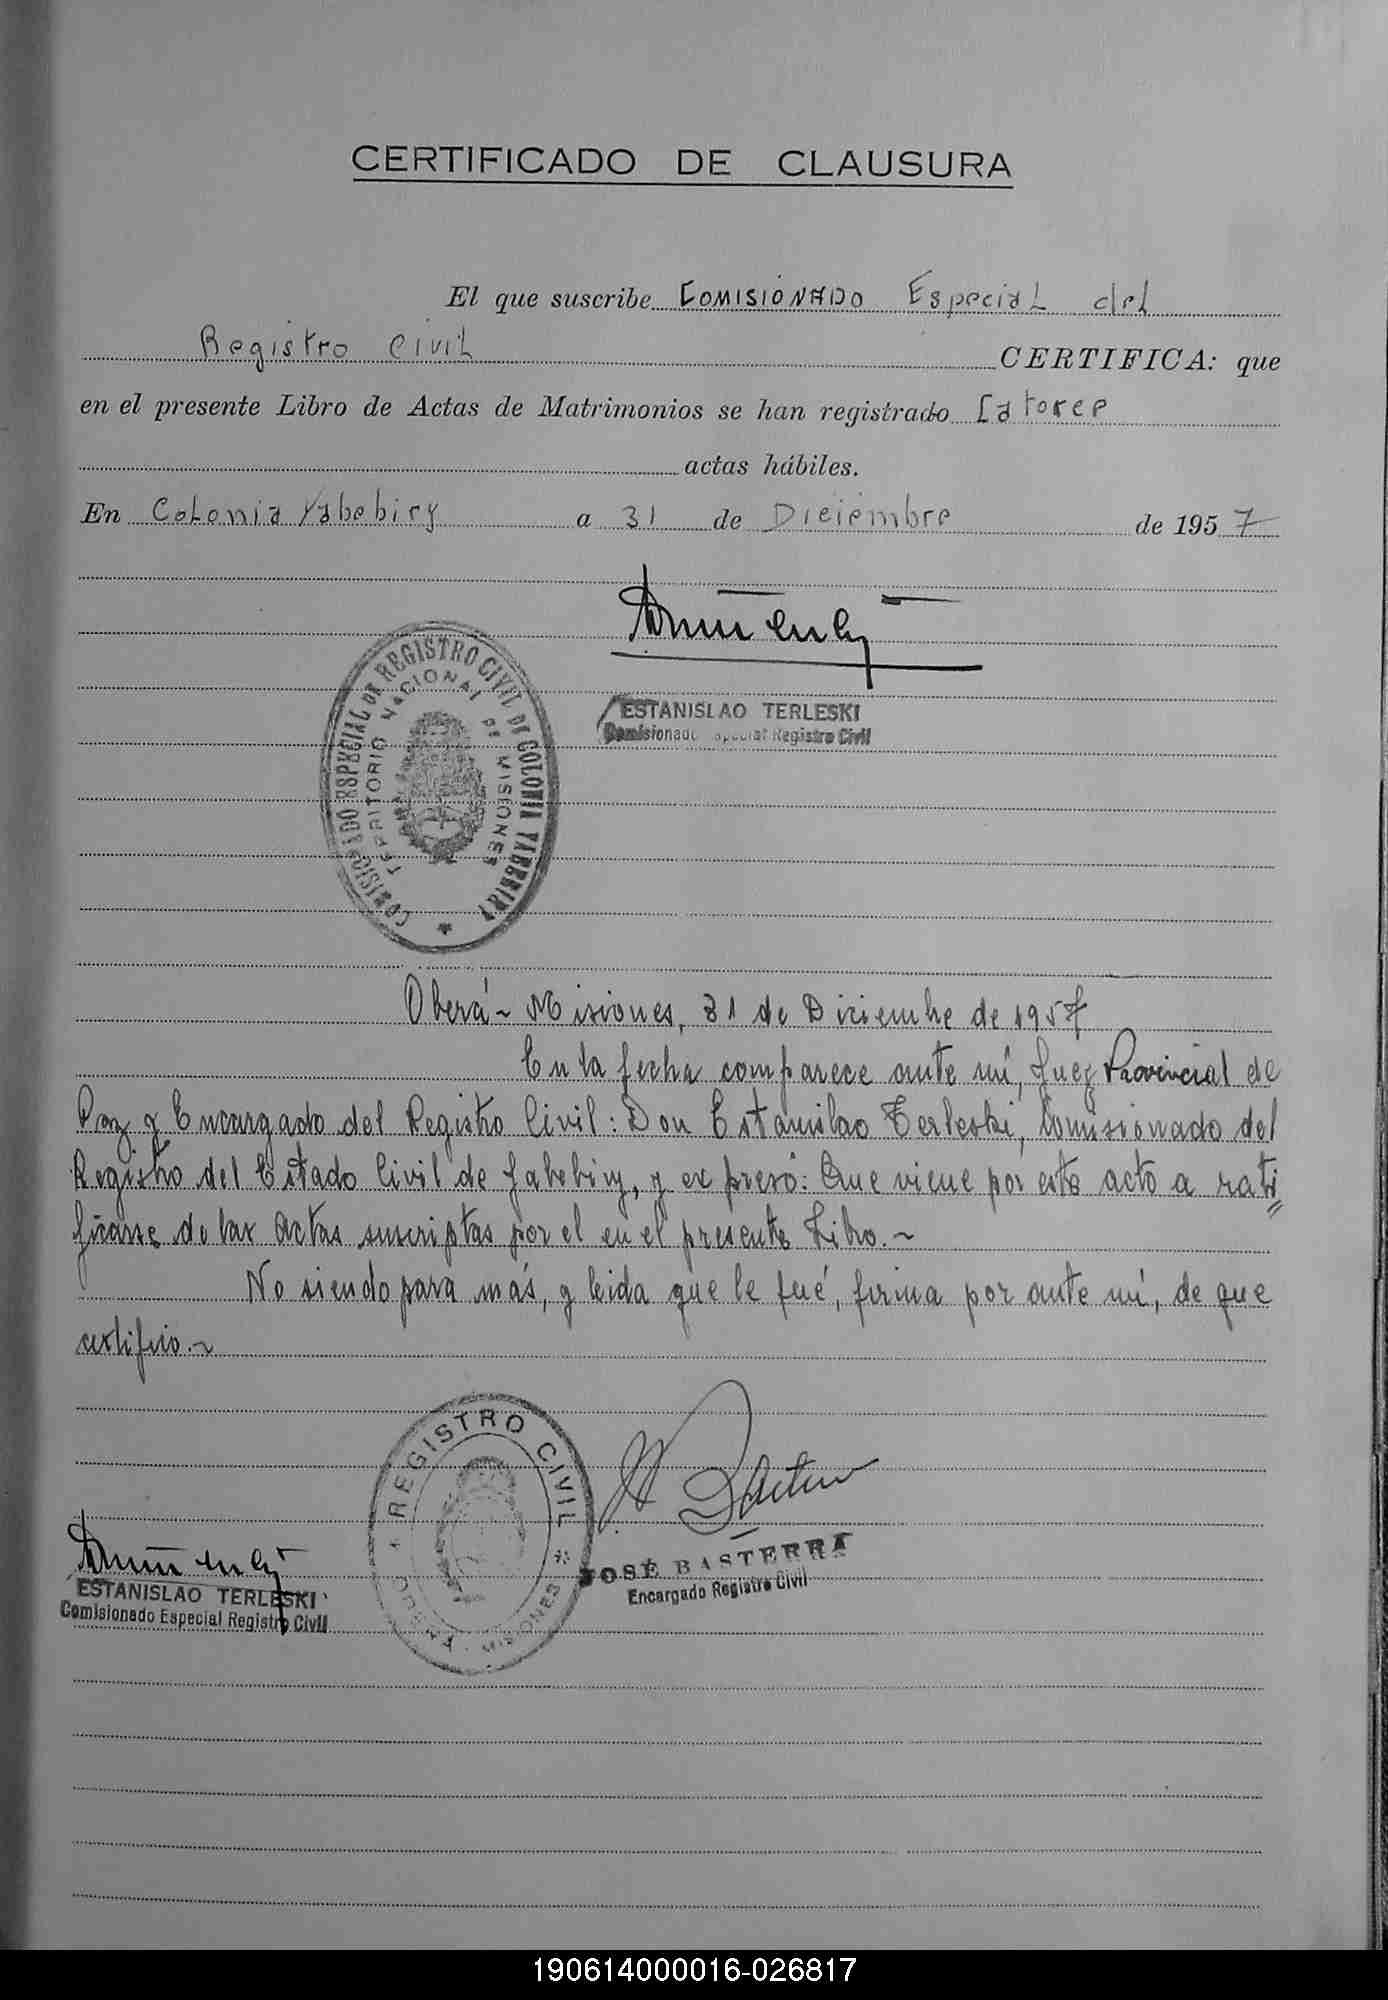 CERTIFICADO DE CLAUSURA
El que suscribe COMISIONADO Especial del
Registro Civil CERTIFICA: que
en el presente Libro de Actas de Matrimonios se han registrado Catorce
actas hábiles.
En Colonia Yabebiry a 31 de Diciembre de 1957
COMISIONADO ESPECIAL DE REGISTRO CIVIL DE COLONIA YABEBIRY
TERRITORIO NACIONAL DE MISIONES
ESTANISLAO TERLESKI
Comisionado Especial Registro Civil
Oberá ~ Misiones, 31 de Diciembre de 1957
En la fecha comparece ante mí, Juez Provincial de
Paz y Encargado del Registro Civil: Don Estanislao Terleski, Comisionado del
Registro del Estado Civil de Yabebiry, y expresó: Que viene por este acto a rati
ficarse de las actas suscriptas por el en el presente Libro.~
No siendo para más, y leida que le fué, firma por ante mí, de que
certifico.~
REGISTRO CIVIL
MISIONES
ESTANISLAO TERLESKI
Comisionado Especial Registro Civil
JOSÉ BASTERRA
Encargado Registro Civil
190614000016-026817